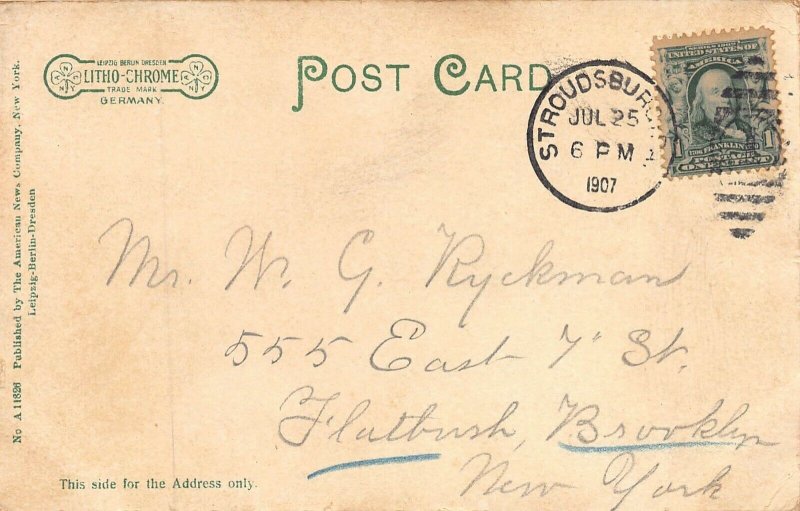 LEIPZIG BERLIN DRESDEN
LITHO-CHROME
TRADE MARK
GERMANY.
POST CARD
STROUDSBURG
JUL 25
6 PM
1907
SERIES 1902
UNITED STATES OF
AMERICA
FRANKLIN
POSTAGE
ONE CENT
1 1
Mr. W. G. Ryckman
555 East 7" St.
Flatbush, Brooklyn
New York
This side for the Address only.
No A 11826 Published by The American News Company, New York.
Leipzig-Berlin-Dresden